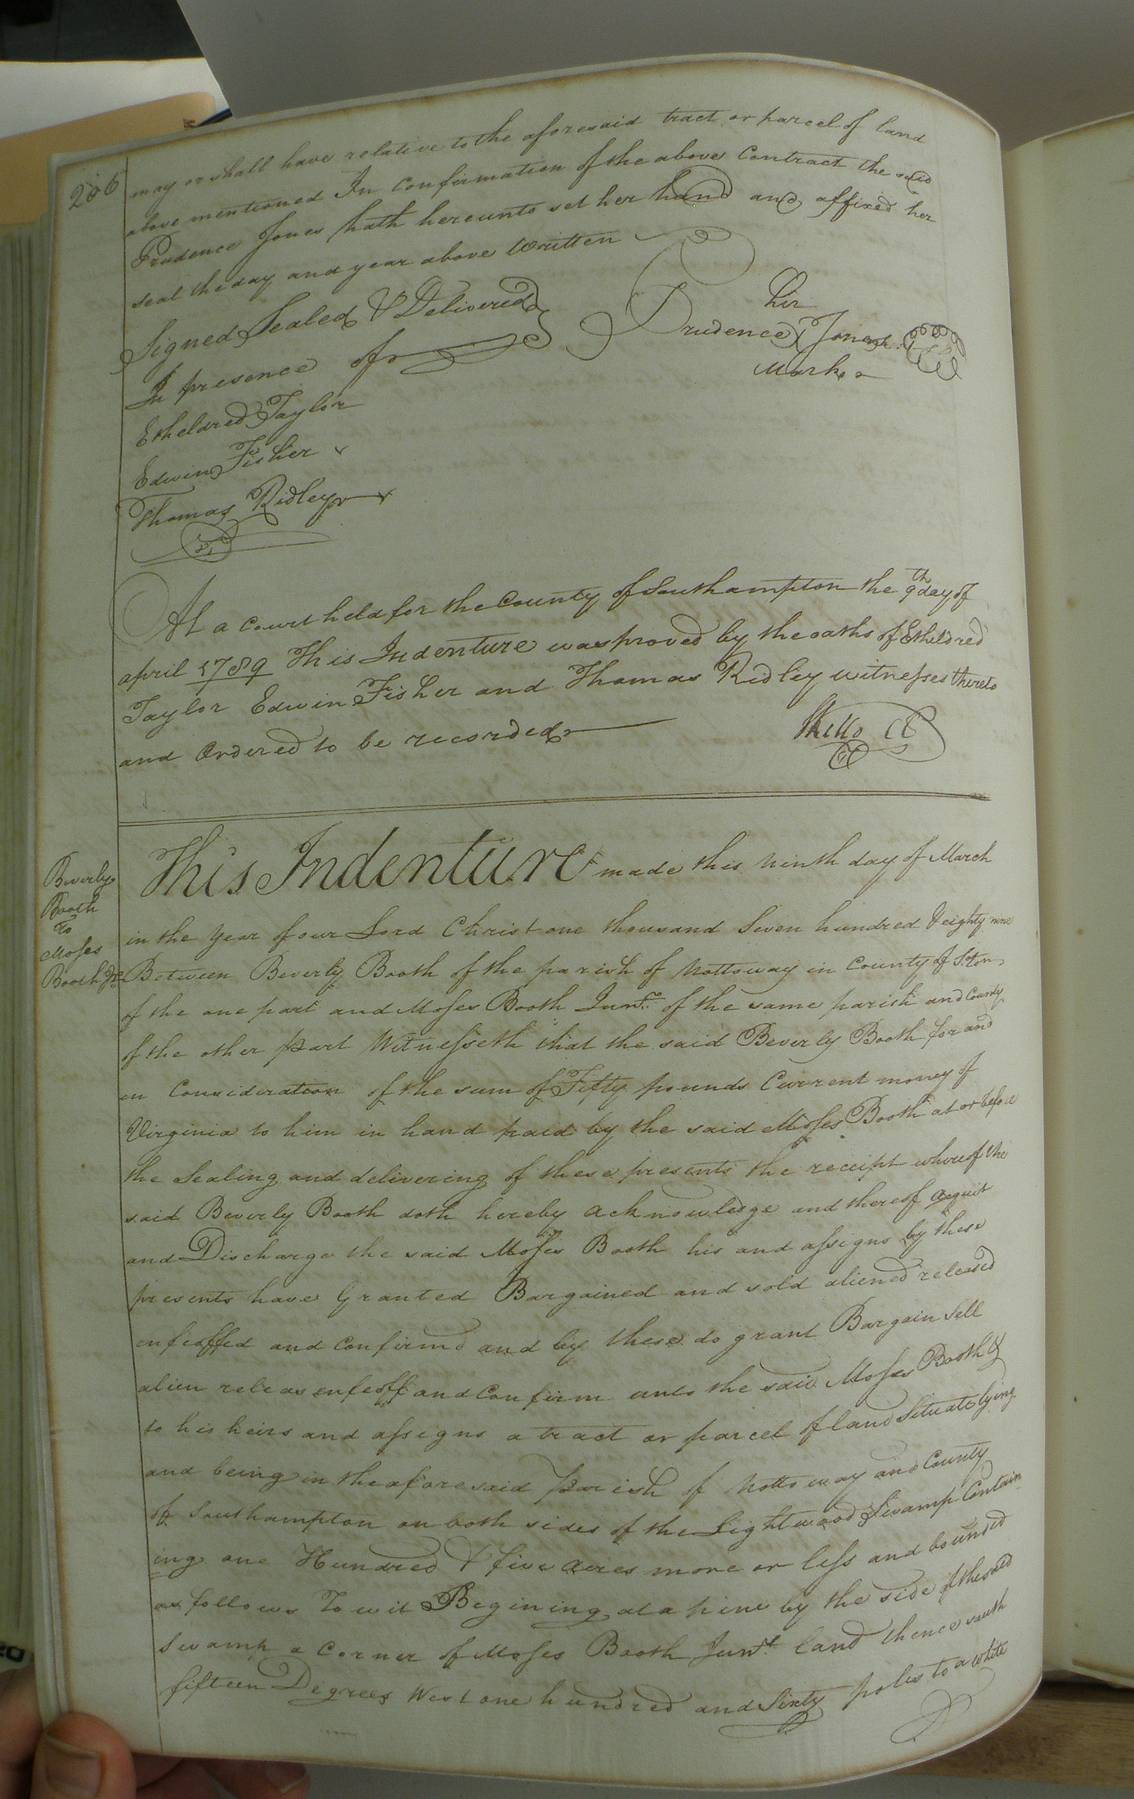 206
may or shall have relative to the aforesaid tract or parcel of land
above mentioned In Confirmation of the above Contract the said
Prudence Jones hath hereunto set her hand and affixed her
seal the day and year above Written
Signed Sealed & Delivered
In presence of
Etheldred Taylor
Edwin Fisher
Thomas Ridley
her
Prudence X Jones
Mark
At a Court held for the County of Southampton the 9th day of
april 1789 This Indenture was proved by the oaths of Etheldred
Taylor Edwin Fisher and Thomas Ridley witnesses thereto
and Ordered to be recorded
Beverly
Booth
To
Moses
Booth Jr
This Indenture made this ninth day of March
in the year of our Lord Christ one thousand Seven hundred & eighty nine
Between Beverly Booth of the parish of Nottoway in County of Soton
of the one part and Moses Booth Junr. of the same parish and County
of the other part Witnesseth that the said Beverly Booth for and
in Consideration of the sum of Fifty pounds Current money of
Virginia to him in hand paid by the said Moses Booth at or before
the Sealing and delivering of these presents the receipt whereof the
said Beverly Booth doth hereby acknowledge and thereof acquit
and Discharge the said Moses Booth his and assigns by these
presents have Granted Bargained and sold aliened released
enfeoffed and Confirmd and by these do grant Bargain sell
alien releas enfeoff and Confirm unto the said Moses Booth &
to his heirs and assigns a tract or parcel of land Situate lying
and being in the aforesaid parish of Nottoway and County
of Southampton on both sides of the Lightwood Swamp Contain
ing one Hundred & five acres more or less and bounded
as follows To wit Begining at a pine by the side of the said
Swamp a Corner of Moses Booth Junr. land thence south
fifteen Degrees West one hundred and Sixty poles to a white